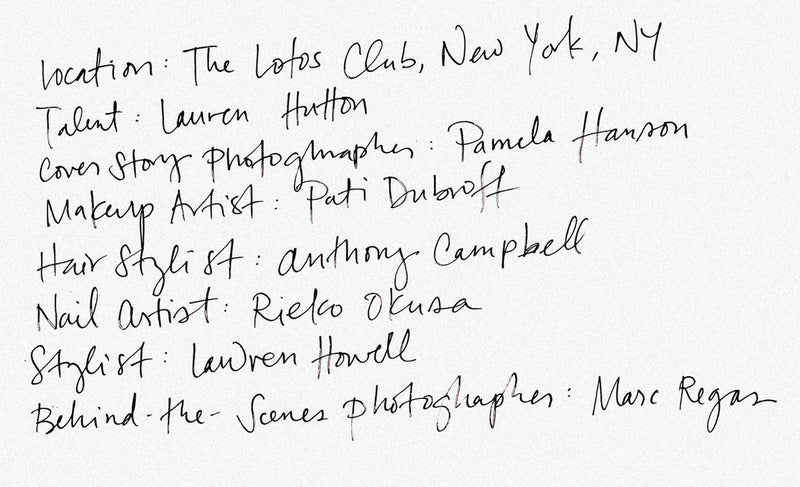 Location: The Lotos Club, New York, NY
Talent: Lauren Hutton
Cover Story Photographer: Pamela Hanson
Makeup Artist: Pati Dubroff
Hair Stylist: Anthony Campbell
Nail Artist: Rieko Okusa
Stylist: Lawren Howell
Behind-the-Scenes Photographer: Marc Regas